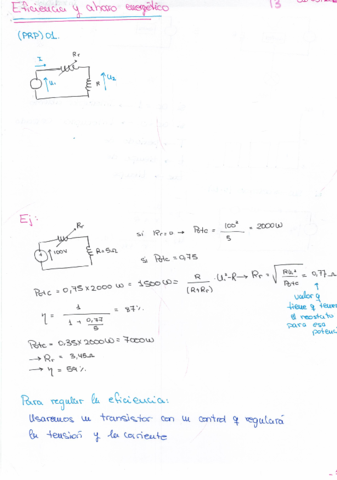 Eficiencia y ahorro energético
13
(PRP) 01.
I
Rr
U1
R
U2
Ej:
Rr
100V
R=5Ω
si Rr=0 → Potc = 100² / 5 = 2000W
si Potc = 0,75
Potc = 0,75 x 2000 W = 1500W = R / (R+Rr)² · U²-R → Rr = √(RU² / Potc) = 0,77 Ω
valor q
tiene q tener
el reostato
para esa
potencia
η = 1 / (1 + 0,77/5) = 87%
Potc = 0,35x2000W = 700W
→ Rr = 3,45Ω
→ η = 59%
Para regular la eficiencia:
Usaremos un transistor con un control q regulará
la tensión y la corriente